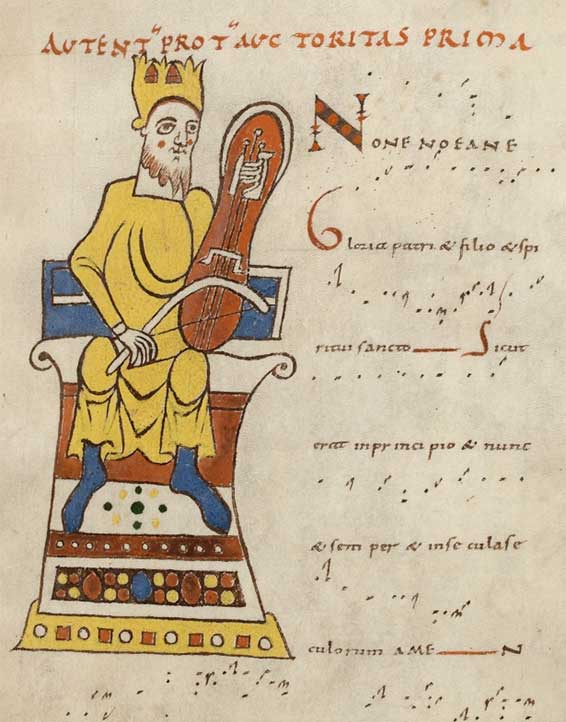 AUTENT' PROT' AUC TORITAS PRIMA
NONE NOEANE
Gloria patri & filio & spi
ritui sancto Sicut
erat inprinci pio & nunc
& sem per & inse culase
culorum AMEN